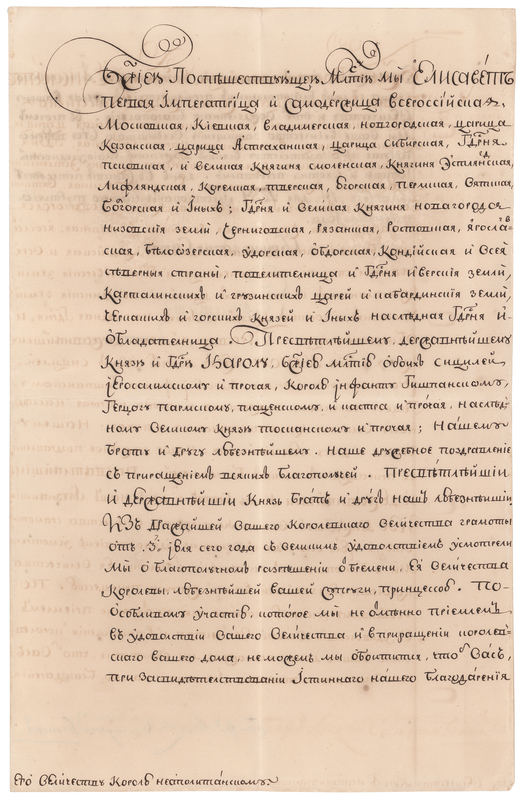 Бжіею Поспѣшествующею Млтію Мы ЕЛИСАВЕТЪ
Первая Імператріца и Самодержица всероссійская,
Московская, Кіевская, владимерская, новгородская, царица
Казанская, царица Астраханская, царица Сибирская, Гдрня
псковская, и великая Княгиня смоленская, Княгиня Эстляндская,
Лифляндская, Корелская, тверская, югорская, пермская, вятская,
Болгорская и Іныхъ; Гдрня и Великая Княгиня новагорода
низовскія земли, черниговская, рязанская, ростовская, яросла-
вская, бѣлоозерская, удорская, обдорская, Кондійская и Всея
сѣверныя страны, повелителница и Гдрня иверскія земли,
Карталинскихъ и грузинскихъ царей и кабардинскія земли,
черкаскихъ и горскихъ князей и Іныхъ наслѣдная Гдрня и
Обладателница. Пресвѣтлѣйшему, державнѣйшему
Князю и Гдрю КАРОЛУ, бжіею млтію обоихъ сицилей
іеросалимскому и прочая, Королю інфанту Гишпанскому,
Герцогу пармскому, плаценскому, и кастра и прочая, наслѣд-
ному Великому Князю тосканскому и прочая; Нашему
Брату и другу любезнѣйшему. Наше дружебное поздравленіе
съ приращеніемъ всякихъ благополучей. Пресвѣтлѣйшіи
и державнѣйшіи Князь Братъ и другъ нашъ любезнѣйшии.
Изъ дражайшей Вашего Королевскаго Величества грамоты
отъ 3 іюля сего года съ великимъ удоволствіемъ усмотрели
Мы о благополучномъ разрѣшеніи от бремени, Ея Величества
Королевы, любезнѣйшей вашей супруги, принцессою. По
особливому участію, которое мы не отмѣнно пріемлемъ
въ удоволствіи Вашего Величества и в приращеніи королев-
скаго вашего дома, не можемъ мы обоитится, чтоб Васъ,
при засвидѣтелствованіи Істиннаго нашего благодаренія
Его Величеству Королю неаполитанскому.